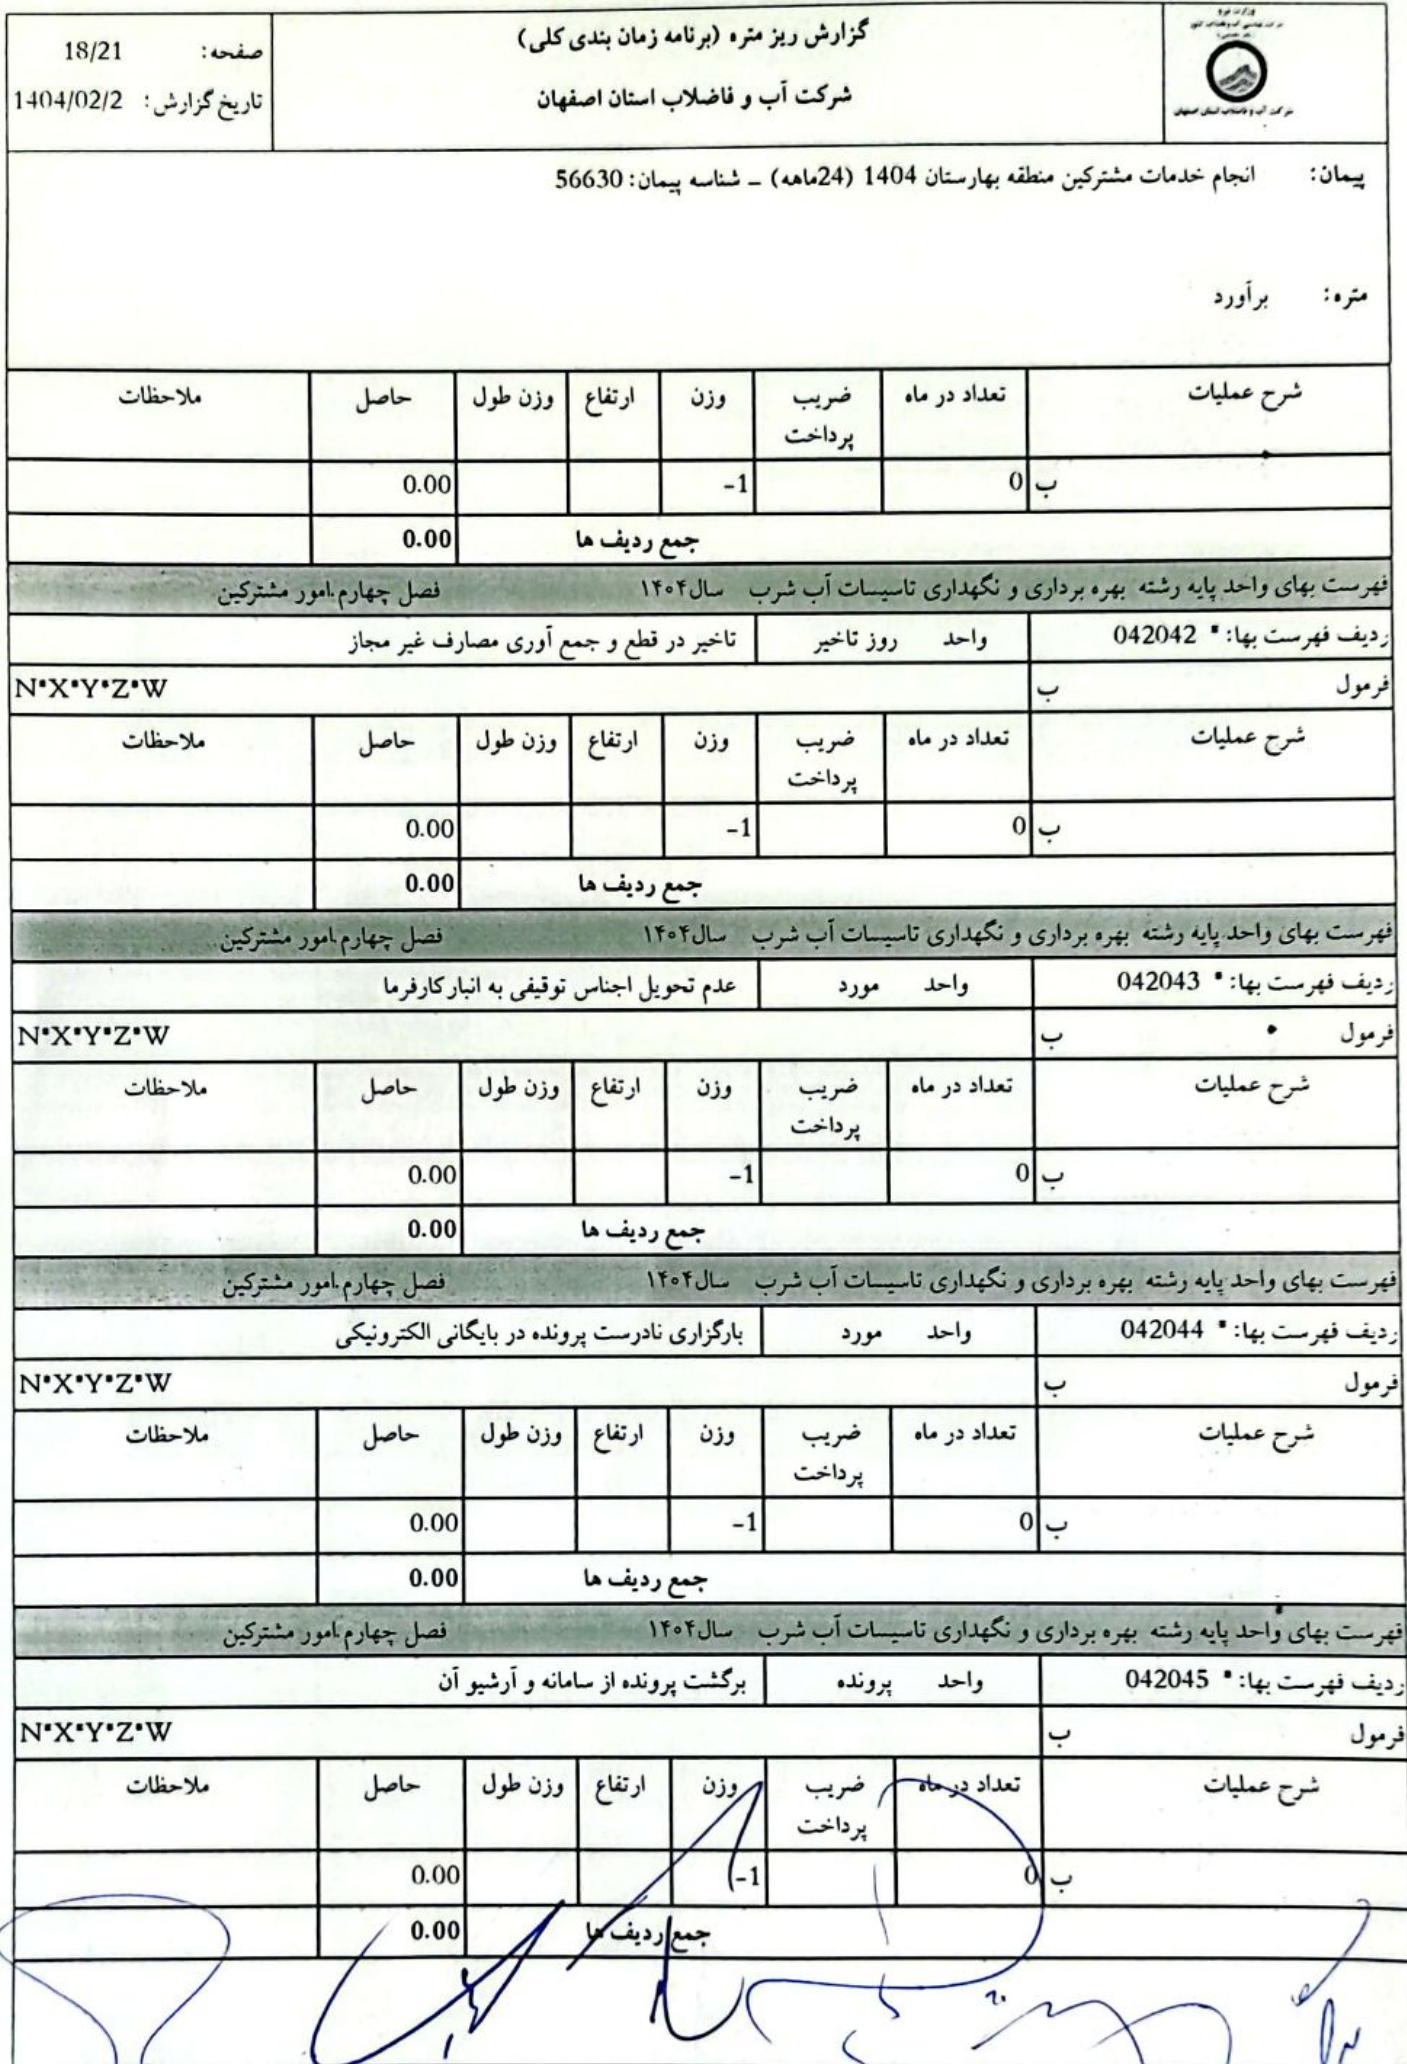 گزارش ریز متره (برنامه زمان بندی کلی)
شرکت آب و فاضلاب استان اصفهان
صفحه: 18/21
تاریخ گزارش: 1404/02/2
وزارت نیرو
شرکت آب و فاضلاب استان اصفهان
پیمان: انجام خدمات مشترکین منطقه بهارستان 1404 (24ماهه) _ شناسه پیمان: 56630
متره: برآورد
شرح عملیات تعداد در ماه ضریب پرداخت وزن ارتفاع وزن طول حاصل ملاحظات
ب 0 -1 0.00
جمع ردیف ها 0.00
فهرست بهای واحد پایه رشته بهره برداری و نگهداری تاسیسات آب شرب سال۱۴۰۴ فصل چهارم.امور مشترکین
ردیف فهرست بها: * 042042 واحد روز تاخیر تاخیر در قطع و جمع آوری مصارف غیر مجاز
فرمول ب N*X*Y*Z*W
شرح عملیات تعداد در ماه ضریب پرداخت وزن ارتفاع وزن طول حاصل ملاحظات
ب 0 -1 0.00
جمع ردیف ها 0.00
فهرست بهای واحد پایه رشته بهره برداری و نگهداری تاسیسات آب شرب سال۱۴۰۴ فصل چهارم.امور مشترکین
ردیف فهرست بها: * 042043 واحد مورد عدم تحویل اجناس توقیفی به انبار کارفرما
فرمول ب N*X*Y*Z*W
شرح عملیات تعداد در ماه ضریب پرداخت وزن ارتفاع وزن طول حاصل ملاحظات
ب 0 -1 0.00
جمع ردیف ها 0.00
فهرست بهای واحد پایه رشته بهره برداری و نگهداری تاسیسات آب شرب سال۱۴۰۴ فصل چهارم.امور مشترکین
ردیف فهرست بها: * 042044 واحد مورد بارگزاری نادرست پرونده در بایگانی الکترونیکی
فرمول ب N*X*Y*Z*W
شرح عملیات تعداد در ماه ضریب پرداخت وزن ارتفاع وزن طول حاصل ملاحظات
ب 0 -1 0.00
جمع ردیف ها 0.00
فهرست بهای واحد پایه رشته بهره برداری و نگهداری تاسیسات آب شرب سال۱۴۰۴ فصل چهارم.امور مشترکین
ردیف فهرست بها: * 042045 واحد پرونده برگشت پرونده از سامانه و آرشیو آن
فرمول ب N*X*Y*Z*W
شرح عملیات تعداد در ماه ضریب پرداخت وزن ارتفاع وزن طول حاصل ملاحظات
ب 0 -1 0.00
جمع ردیف ها 0.00